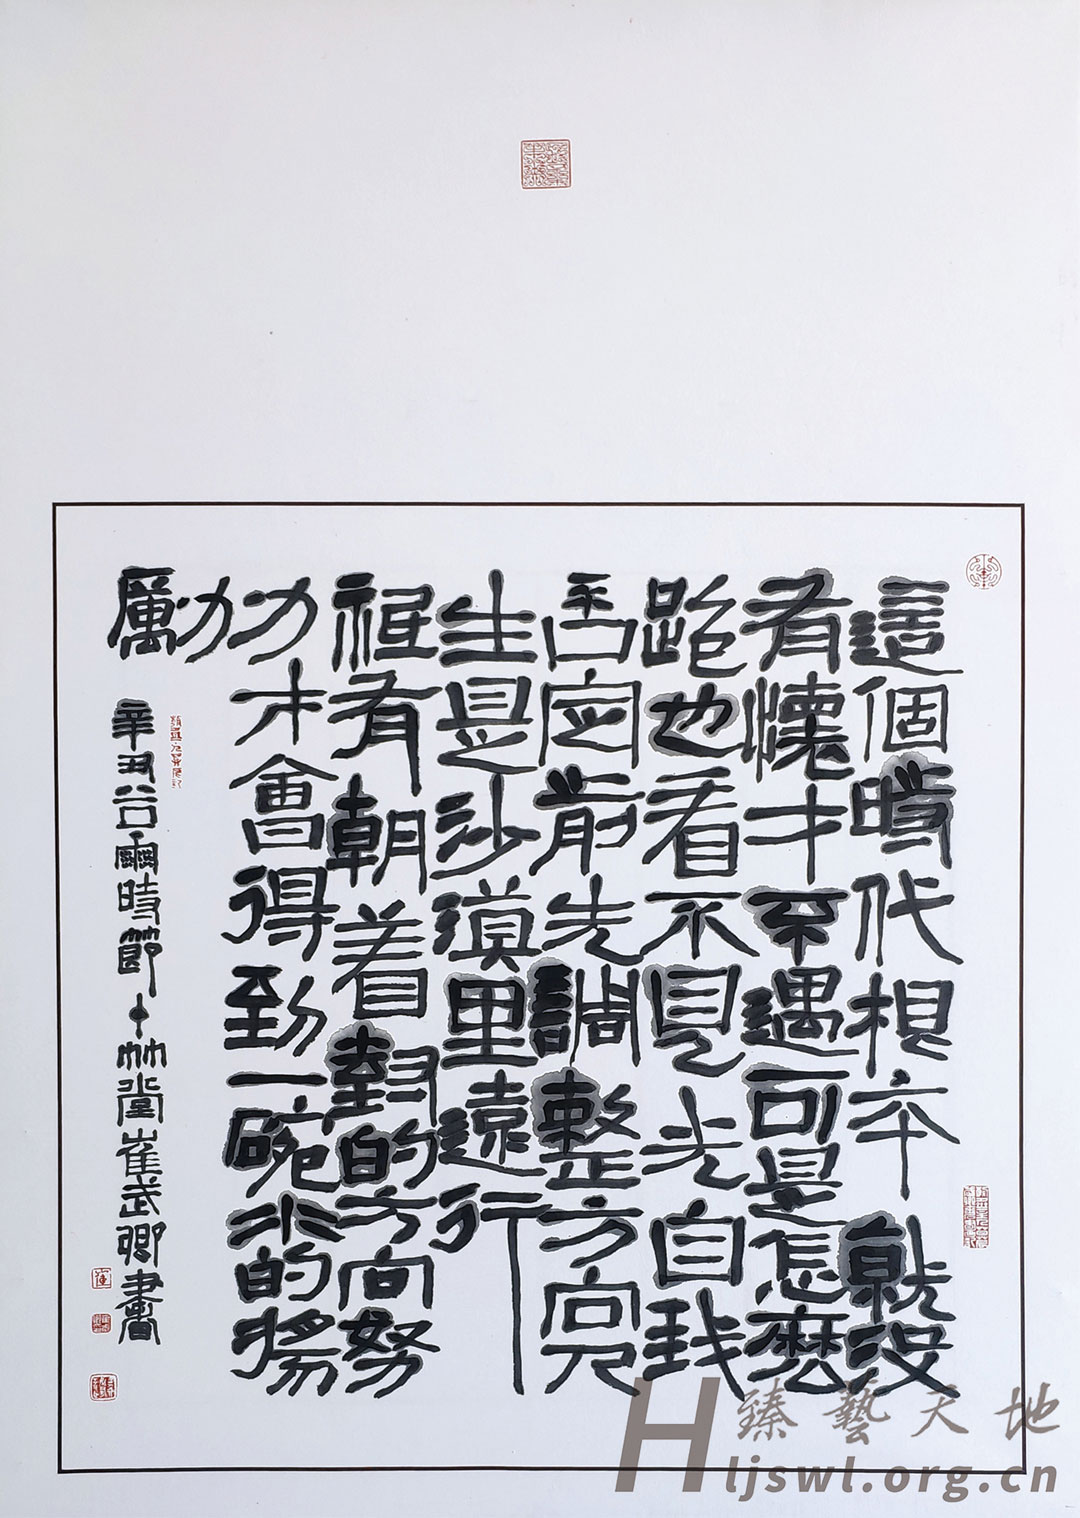 這個時代根本就没
有懷才不遇可是怎麽
跑也看不見光自我
否定前先調整方向人
生是沙漠里遠行
祇有朝着對的方向努
力才會得到一碗水的獎
勵
辛丑谷雨時節十竹堂崔武卿書
臻藝天地
Hljswl.org.cn